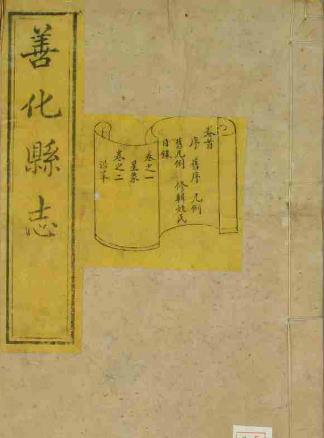 善化縣志
卷首
序 舊序 凡例
舊凡例 修輯姓氏
目錄
卷之一
星象
卷之二
沿革